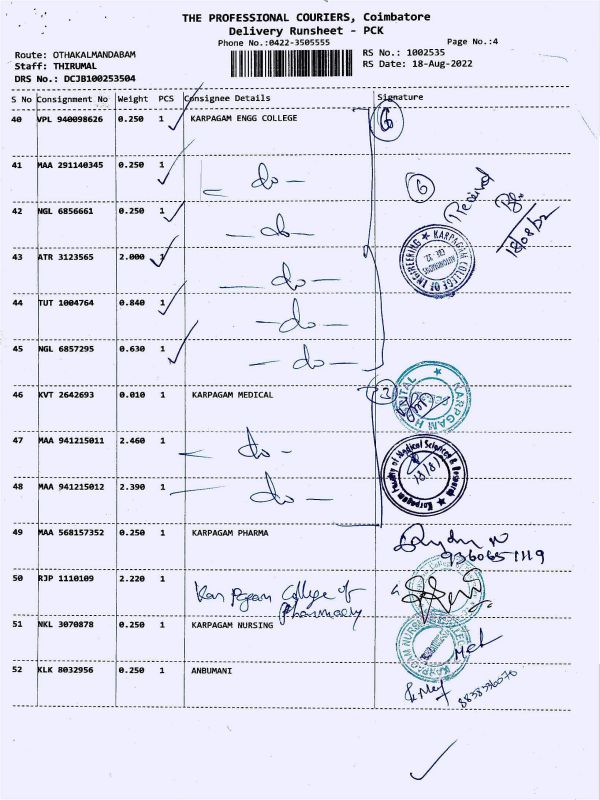 THE PROFESSIONAL COURIERS, Coimbatore
Delivery Runsheet - PCK
Phone No.:0422-3505555 Page No.:4
Route: OTHAKALMANDABAM RS No.: 1002535
Staff: THIRUMAL RS Date: 18-Aug-2022
DRS No.: DCJB100253504
S No Consignment No Weight PCS Consignee Details Signature
40 VPL 940098626 0.250 1 KARPAGAM ENGG COLLEGE 6
41 MAA 291140345 0.250 1 — do — 6 Received
42 NGL 6856661 0.250 1 — do — 18/08/22
KARPAGAM COLLEGE OF ENGINEERING
AUTONOMOUS
CBE 32
43 ATR 3123565 2.000 1 — do —
44 TUT 1004764 0.840 1 — do —
45 NGL 6857295 0.630 1 — do —
46 KVT 2642693 0.010 1 KARPAGAM MEDICAL 3
KARPAGAM HOSPITAL
47 MAA 941215011 2.460 1 — do —
Karpagam Faculty of Medical Sciences & Research
18/8/
48 MAA 941215012 2.390 1 — do —
49 MAA 568157352 0.250 1 KARPAGAM PHARMA
9360651119
50 RJP 1110109 2.220 1 Karpagam College of
Pharmacy
51 NKL 3070878 0.250 1 KARPAGAM NURSING
52 KLK 8032956 0.250 1 ANBUMANI